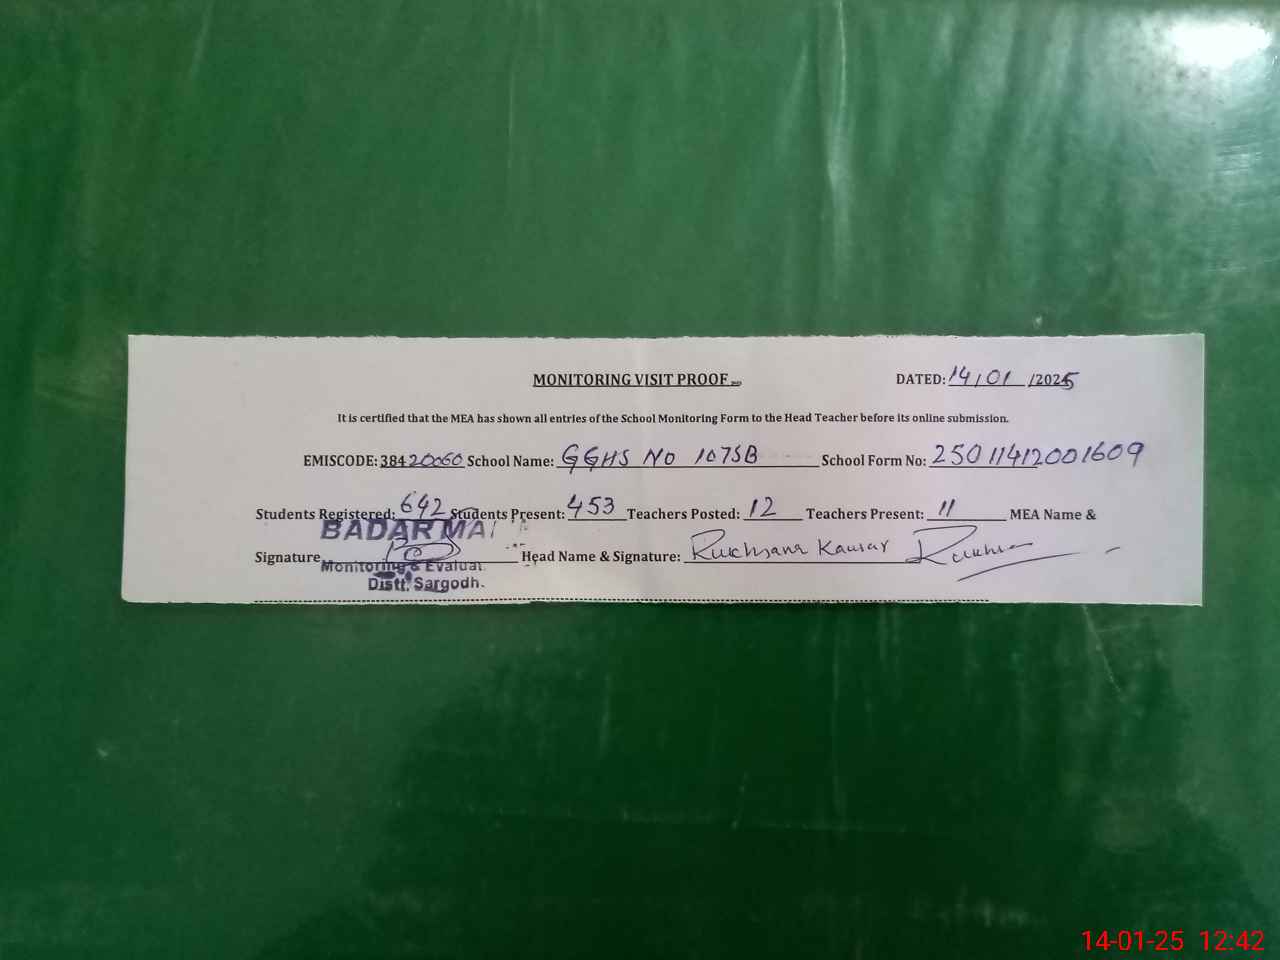 MONITORING VISIT PROOF
DATED: 14/01/2025
It is certified that the MEA has shown all entries of the School Monitoring Form to the Head Teacher before its online submission.
EMISCODE: 38420060 School Name: GGHS NO 107SB School Form No: 25011412001609
Students Registered: 642 Students Present: 453 Teachers Posted: 12 Teachers Present: 11 MEA Name &
BADAR
Signature Head Name & Signature: Rukhsana Kausar
Monitoring & Evaluat.
Distt. Sargodh.
14-01-25 12:42